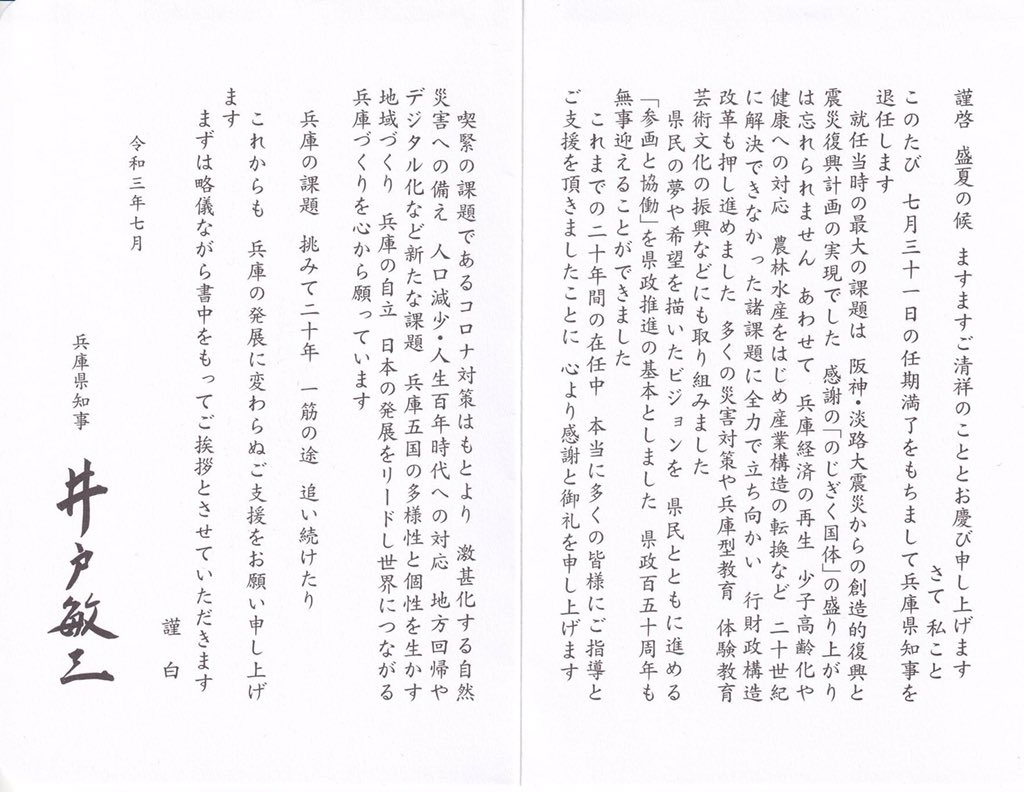 謹啓　盛夏の候　ますますご清祥のこととお慶び申し上げます
さて　私こと
このたび　七月三十一日の任期満了をもちまして兵庫県知事を
退任します
就任当時の最大の課題は　阪神・淡路大震災からの創造的復興と
震災復興計画の実現でした　感謝の「のじぎく国体」の盛り上がり
は忘れられません　あわせて　兵庫経済の再生　少子高齢化や
健康への対応　農林水産をはじめ産業構造の転換など　二十世紀
に解決できなかった諸課題に全力で立ち向かい　行財政構造
改革も押し進めました　多くの災害対策や兵庫型教育　体験教育
芸術文化の振興などにも取り組みました
県民の夢や希望を描いたビジョンを　県民とともに進める
「参画と協働」を県政推進の基本としました　県政百五十周年も
無事迎えることができました
これまでの二十年間の在任中　本当に多くの皆様にご指導と
ご支援を頂きましたことに　心より感謝と御礼を申し上げます
喫緊の課題であるコロナ対策はもとより　激甚化する自然
災害への備え　人口減少・人生百年時代への対応　地方回帰や
デジタル化など新たな課題　兵庫五国の多様性と個性を生かす
地域づくり　兵庫の自立　日本の発展をリードし世界につながる
兵庫づくりを心から願っています
兵庫の課題　挑みて二十年　一筋の途　追い続けたり
これからも　兵庫の発展に変わらぬご支援をお願い申し上げ
ます
まずは略儀ながら書中をもってご挨拶とさせていただきます
謹　白
令和三年七月
兵庫県知事　井戸敏三